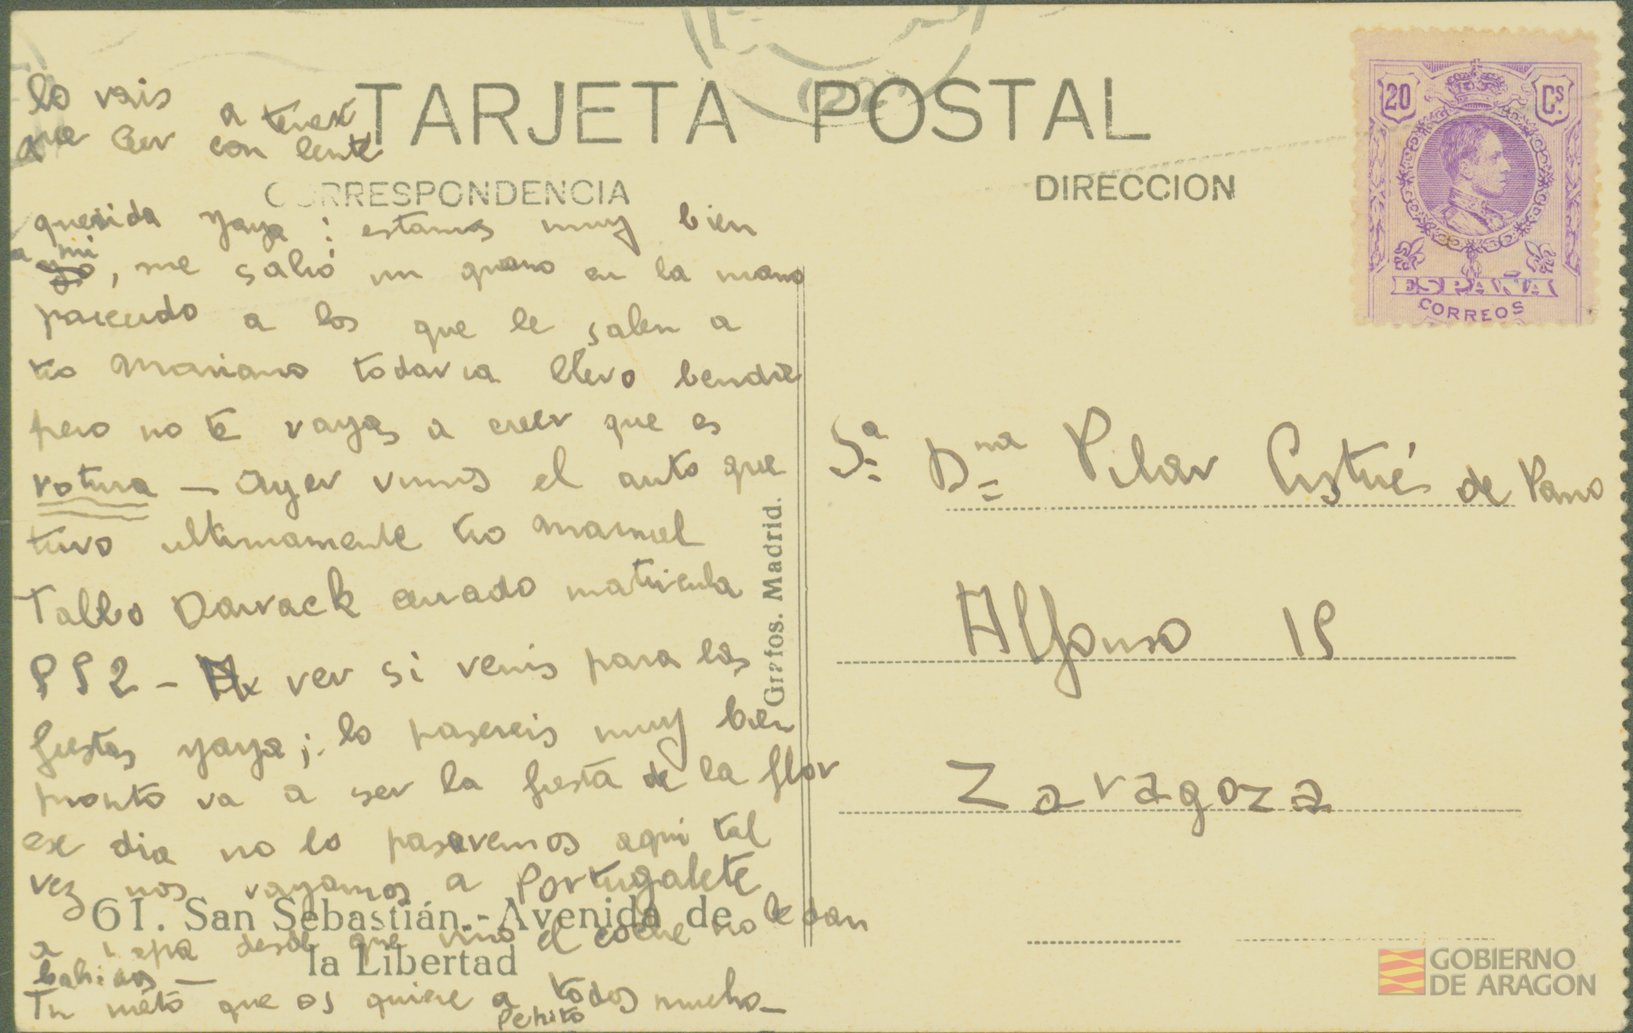 TARJETA POSTAL
CORRESPONDENCIA
DIRECCION
20 Cs
ESPAÑA
CORREOS
lo vais a tener
que leer con lente
querida yaya: estamos muy bien
a mi yo, me salió un grano en la mano
parecido a los que le salen a
tio Mariano todavia llevo benda
pero no te vayas a creer que es
rotura — Ayer vimos el auto que
tuvo ultimamente tio Manuel
Talbo Darrack cerrado matricula
PS2 - A ver si venis para las
fiestas yaya; lo pasereis muy bien
pronto va a ser la fiesta de la flor
ese dia no lo pasaremos aqui tal
vez nos vayamos a Portugalete
a pepa desde que vino el coche no le dan
bahidos —
Tu nieto que os quiere a todos mucho —
Pepito
61. San Sebastián.-Avenida de
la Libertad
Grafos. Madrid.
Sª Dma Pilar Cistué de Pano
Alfonso 15
Zaragoza
GOBIERNO
DE ARAGON